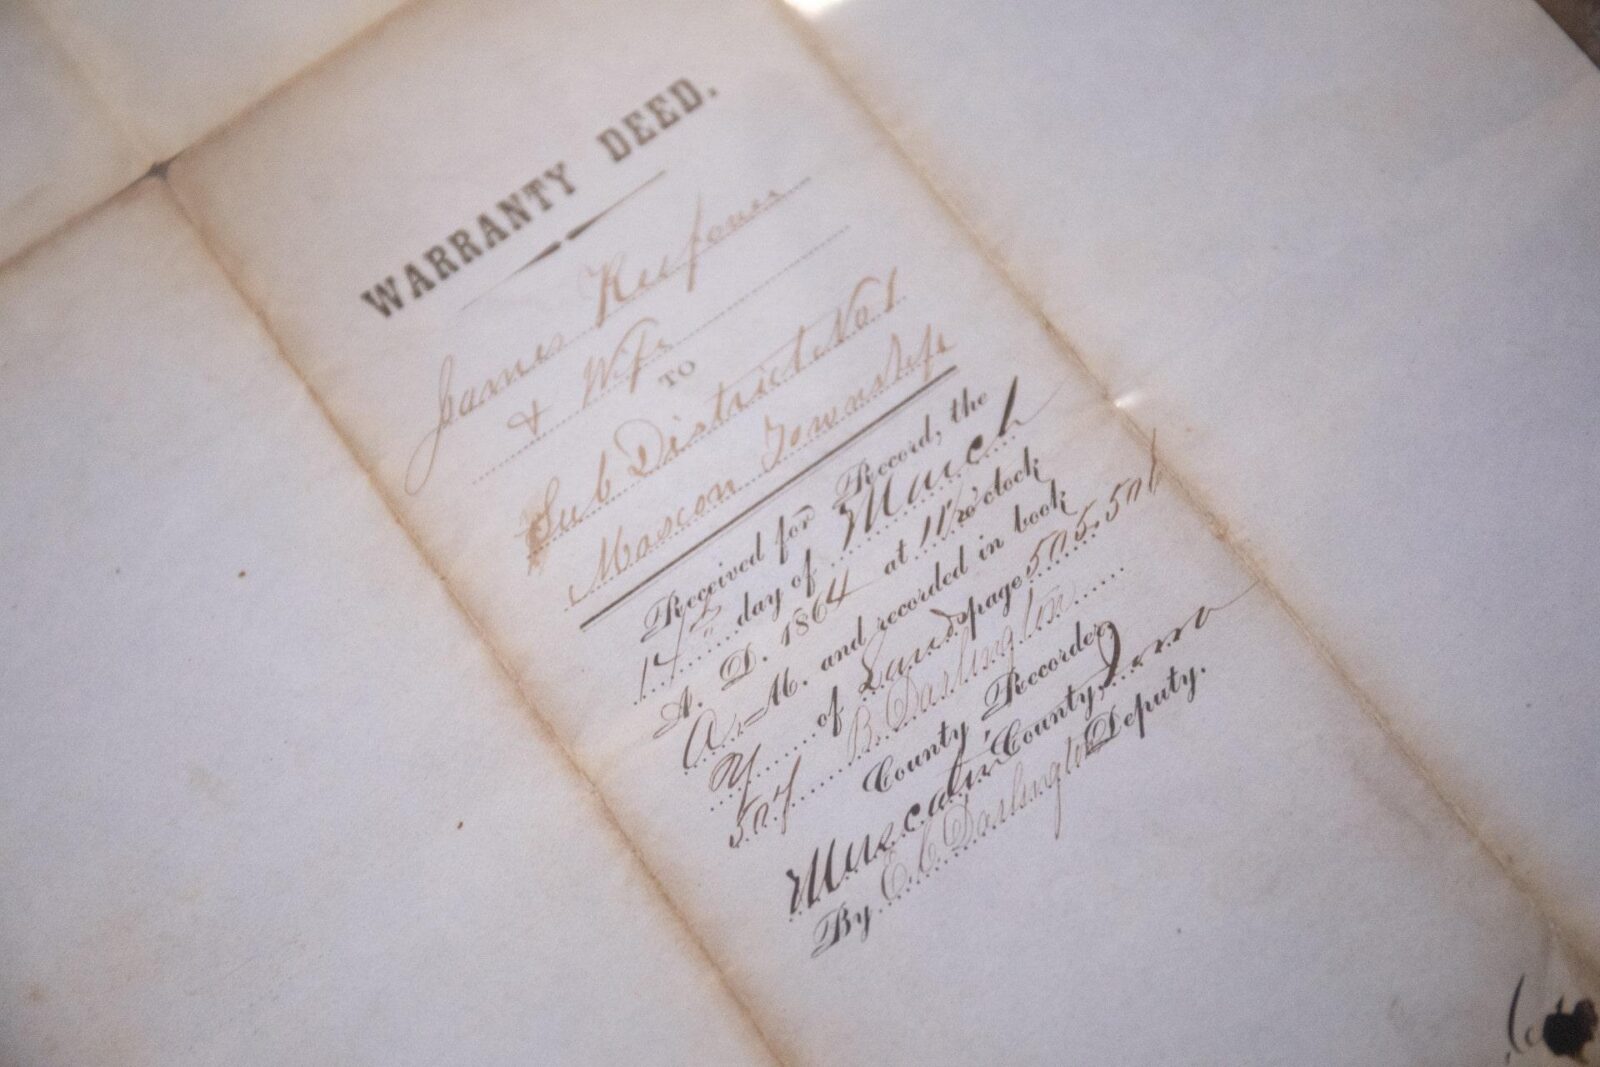 WARRANTY DEED.
James
& Wife
TO
Sub District No 1
Moscow Township
Received for Record, the
14 day of March
A. D. 1864 at 11 o'clock
A. M. and recorded in book
Y of Lands page 505, 506
507 B. Darlington
County Recorder,
Muscatine County, Iowa
By E C Darlington Deputy.